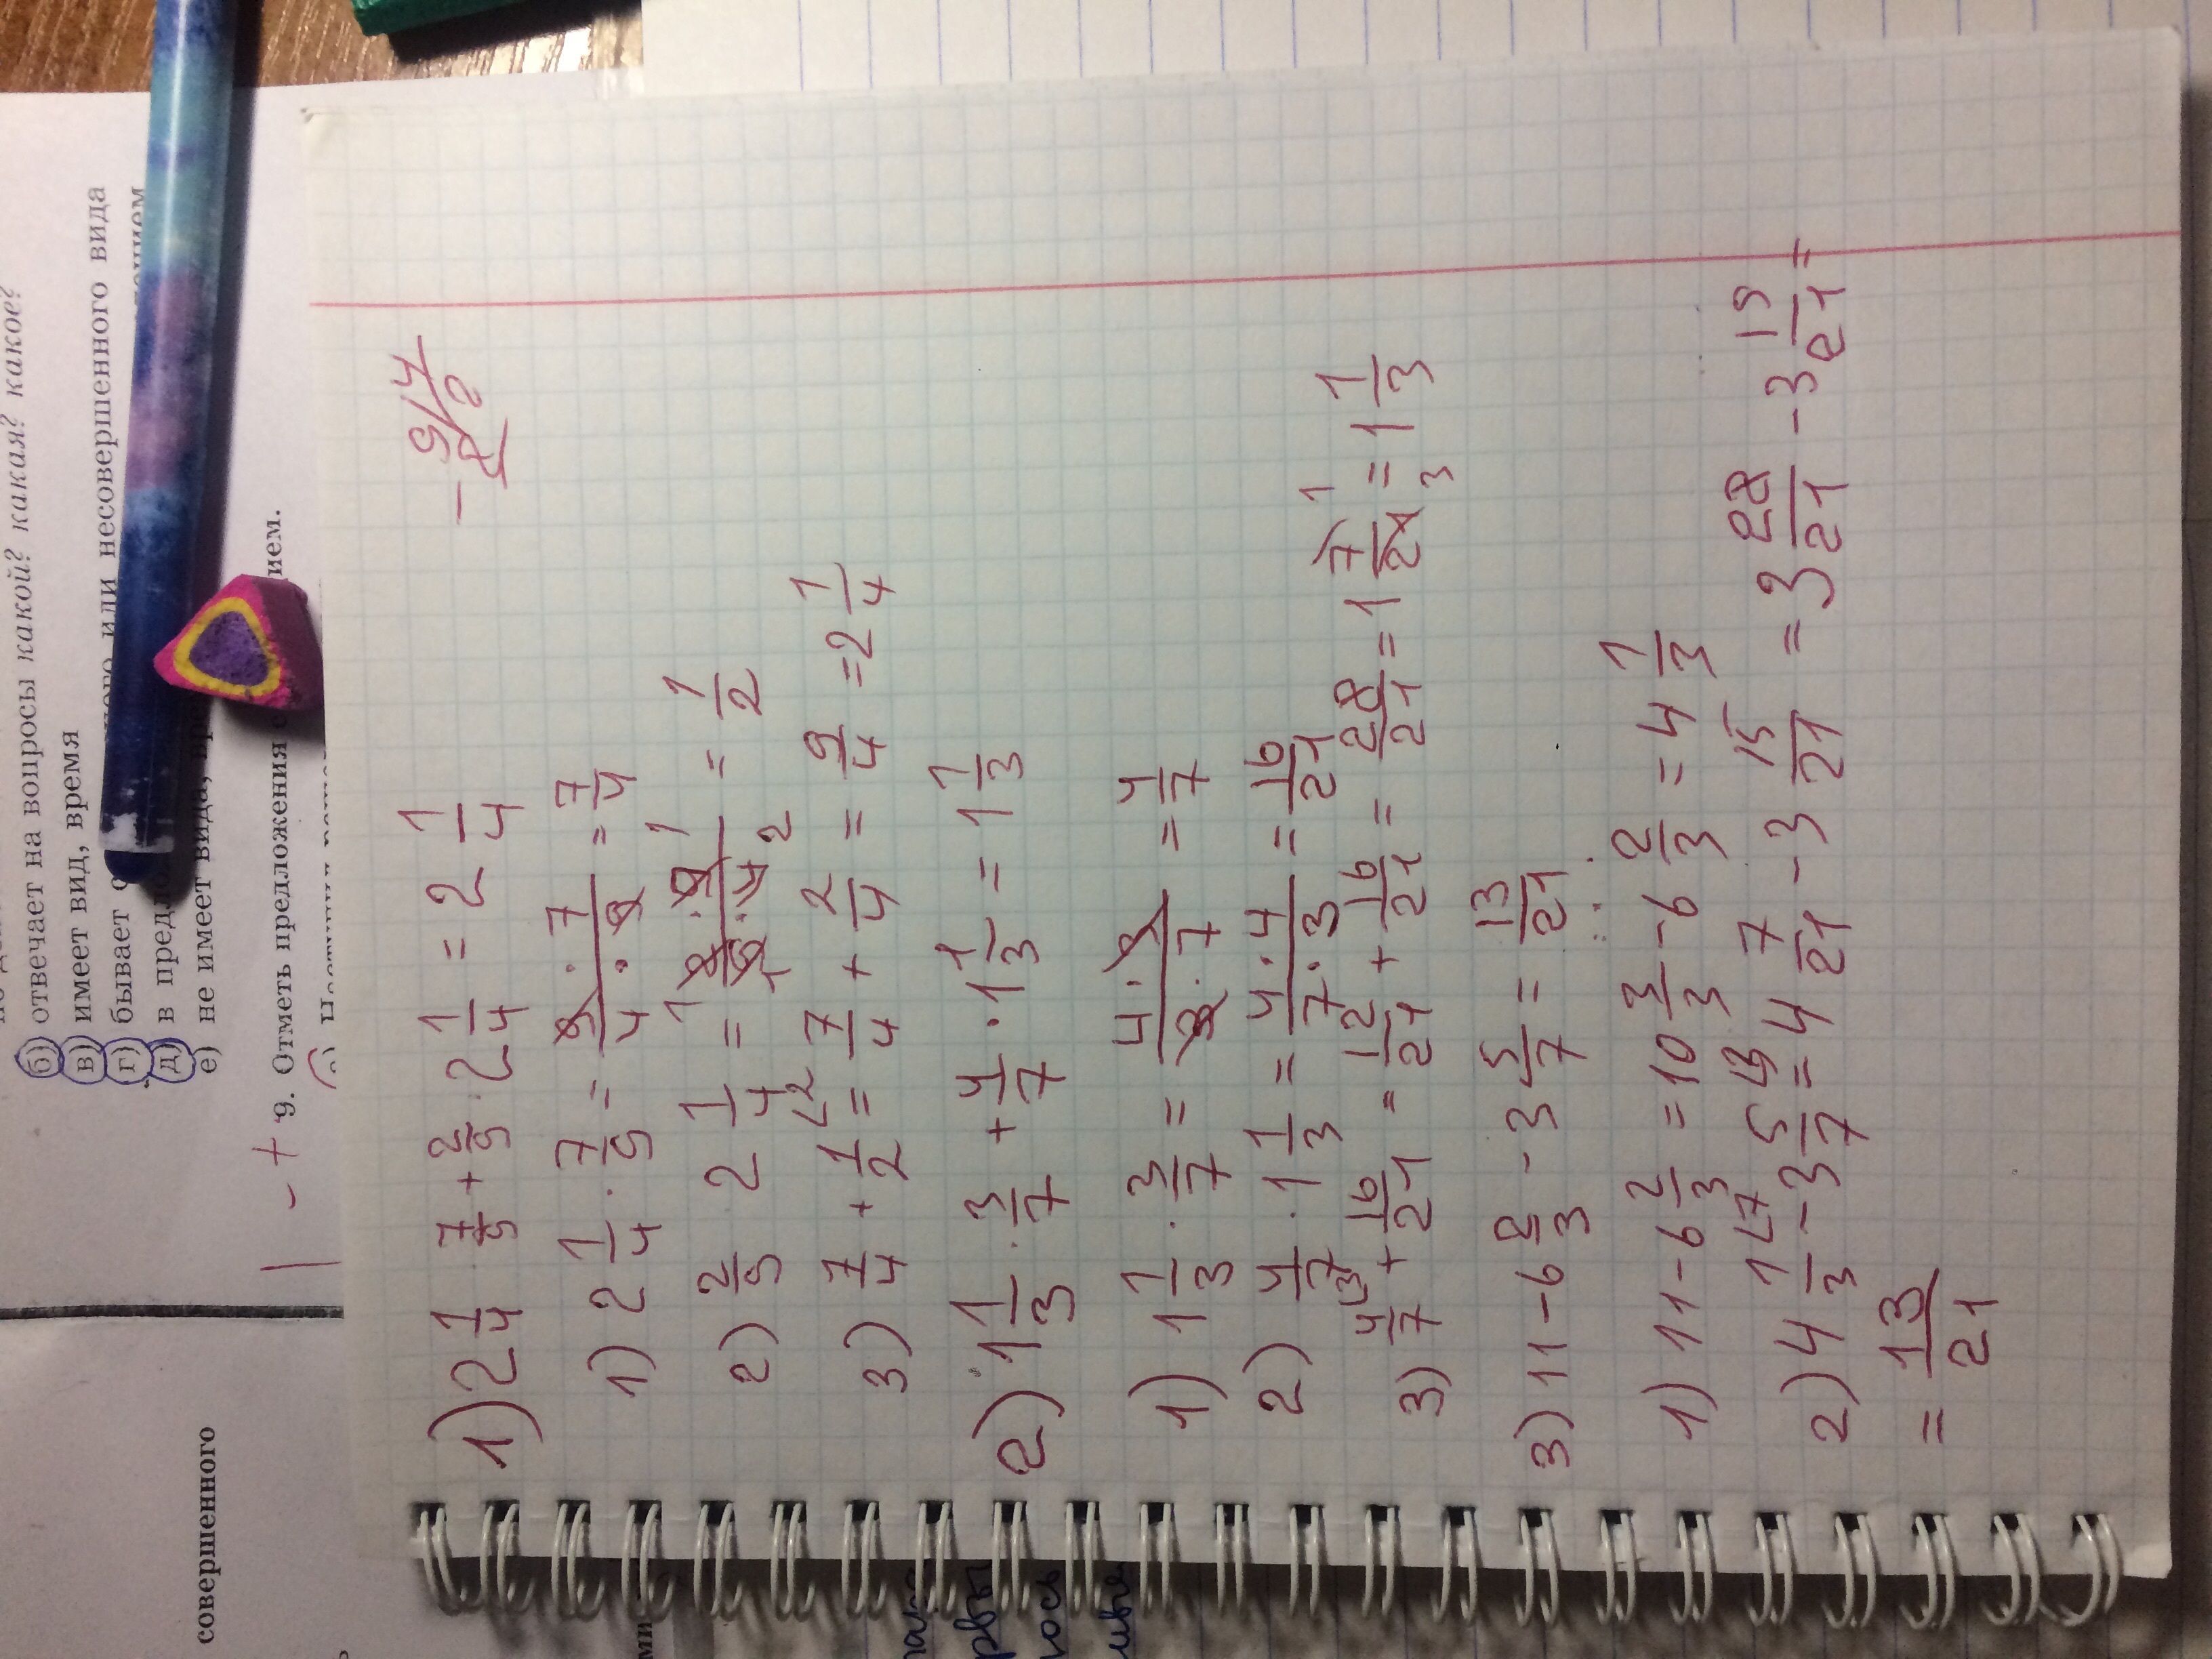 б) отвечает на вопросы какой? какая? какое?
в) имеет вид, время
г) бывает
или несовершенного вида
д) в
е) не имеет вида,
9. Отметь предложения
совершенного
- 9 | 4
2
1) 2 1/4 · 7/9 + 2/9 · 2 1/4 = 2 1/4
1) 2 1/4 · 7/9 = 9 · 7 / 4 · 9 = 7/4
2) 2/9 · 2 1/4 = 2 · 9 / 9 · 4 = 1/2
3) 7/4 + 1/2 = 7/4 + 2/4 = 9/4 = 2 1/4
2) 1 1/3 · 3/7 + 4/7 · 1 1/3 = 1 1/3
1) 1 1/3 · 3/7 = 4 · 3 / 3 · 7 = 4/7
2) 4/7 · 1 1/3 = 4 · 4 / 7 · 3 = 16/21
3) 4/7 + 16/21 = 12/21 + 16/21 = 28/21 = 1 7/21 = 1 1/3
3) 11 - 6 2/3 - 3 5/7 = 13/21
1) 11 - 6 2/3 = 10 3/3 - 6 2/3 = 4 1/3
2) 4 1/3 - 3 5/7 = 4 7/21 - 3 15/21 = 3 28/21 - 3 15/21 =
= 13/21